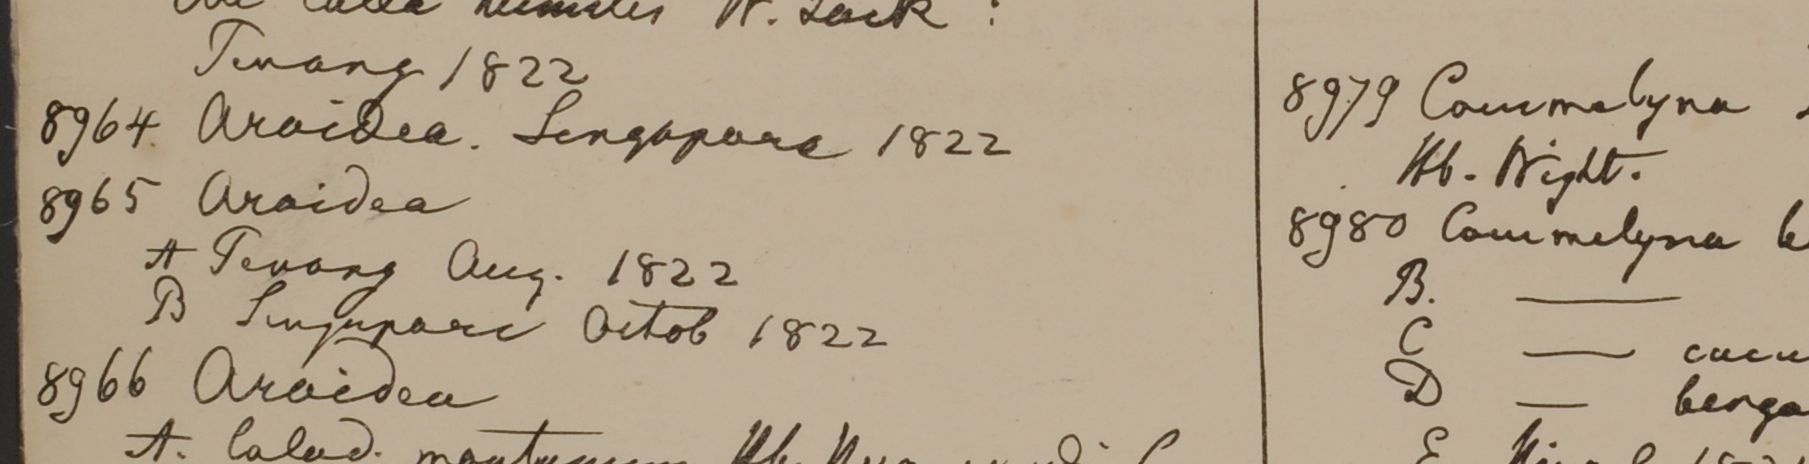 W. Jack :
Penang 1822
8964. Aroidea. Singapore 1822
8965 Aroidea
A Penang Aug. 1822
B Singapore Octob 1822
8966 Aroidea
A. Calad.
8979 Commelyna
Hb. Wight.
8980 Commelyna be
B. ——
C —— cucu
D — benga
E